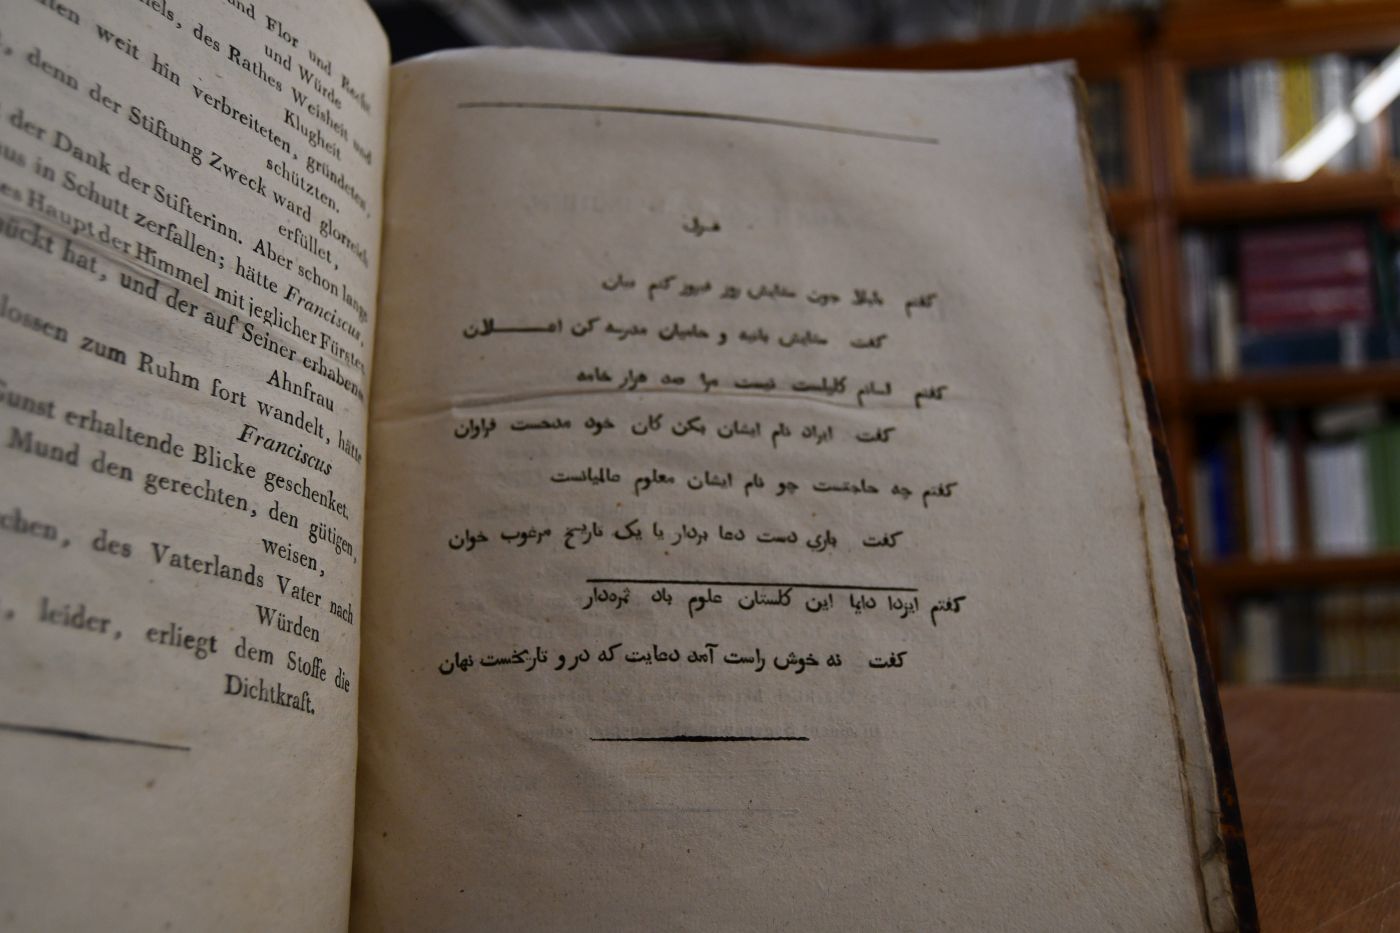 und Flor und Recht
und Würde
des Rathes Weisheit und
Klugheit
weit hin verbreiteten, gründeten,
schützten.
denn der Stiftung Zweck ward glorreich
erfüllet,
der Dank der Stifterinn. Aber schon langs
in Schutt zerfallen; hätte Franciscus,
Haupt der Himmel mit jeglicher Fürsten
hat, und der auf Seiner erhabene
Ahnfrau
zum Ruhm fort wandelt, hätte
Franciscus
Gunst erhaltende Blicke geschenket.
Mund den gerechten, den gütigen,
weisen,
des Vaterlands Vater nach
Würden
, leider, erliegt dem Stoffe die
Dichtkraft.
غزل
گفتم بلبلا چون ستایش روز فیروز کنم بیان
گفت ستایش بانیه و حامیان مدرسه کن اعـــــلان
گفتم آسانم کاریست نیست مرا صد هزار خامه
گفت ایراد نام ایشان بکن کان خود مدحست فراوان
گفتم چه حاجتست چو نام ایشان معلوم عالمیانست
گفت باری دست دعا بردار با یک تاریخ مرغوب خوان
گفتم ایزدا دایما این گلستان علوم باد ثمره‌دار
گفت نه خوش راست آمد دعایت که در و تاریخست نهان